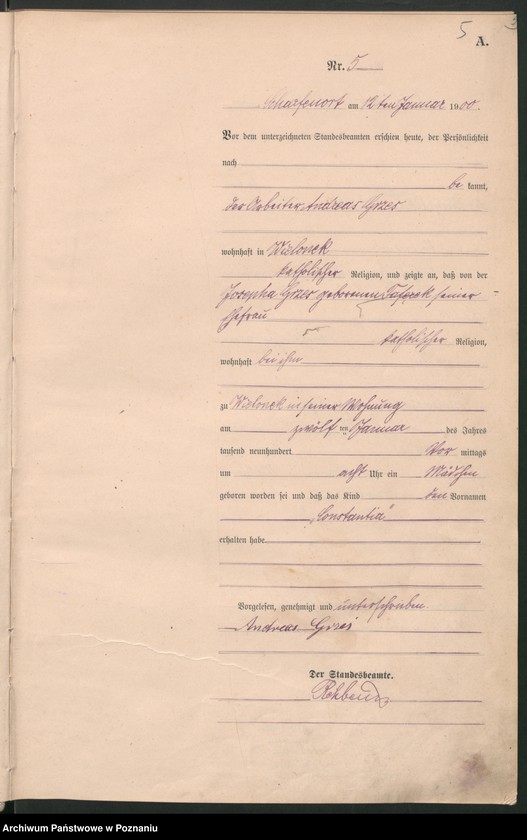 5
A.
Nr. 5
Scharfenort am 12ten Januar 1900.
Vor dem unterzeichneten Standesbeamten erschien heute, der Persönlichkeit
nach
be kannt,
der Arbeiter Andreas Grzes
wohnhaft in Wielonek
katholischer Religion, und zeigte an, daß von der
Josepha Grzes geborenen seiner
Ehefrau
katholischer Religion,
wohnhaft bei ihm
zu Wielonek in seiner Wohnung
am zwölf ten Januar des Jahres
tausend neunhundert Vor mittags
um acht Uhr ein Mädchen
geboren worden sei und daß das Kind den Vornamen
„Constantia“
erhalten habe.
Vorgelesen, genehmigt und unterschrieben
Andreas Grzes
Der Standesbeamte.
Archiwum Państwowe w Poznaniu